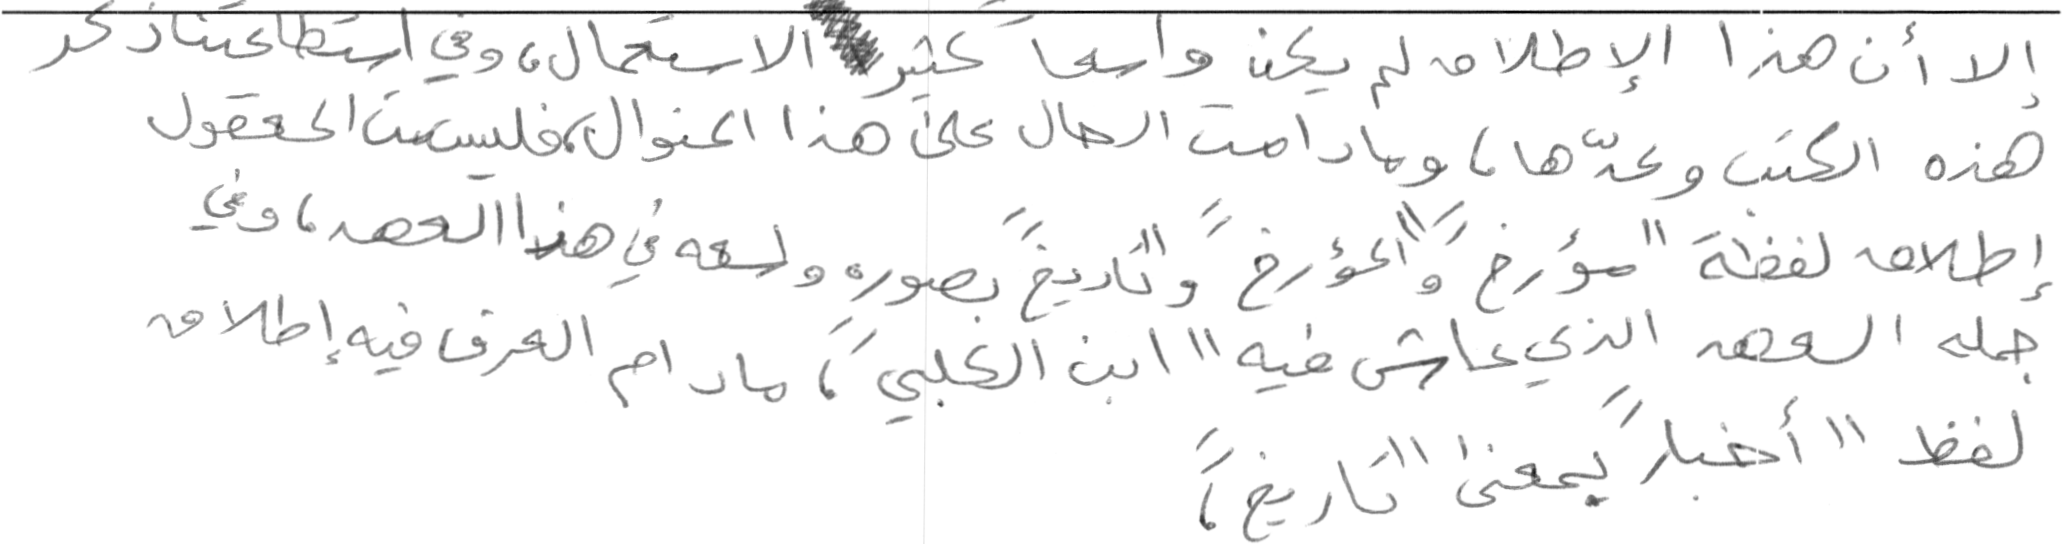 إلا أن هذا الإطلاق لم يكن واسعا كثير الاستعمال، وفي استطاعتنا ذكر
هذه الكتب وعدّها، وما دامت الحال على هذا المنوال، فليس من المعقول
إطلاق لفظة "مؤرخ" و"المؤرخ" و"تاريخ" بصوره واسعه في هذا العهد، وفي
جمله العهد الذي عاش فيه "ابن الكلبي"، ما دام العرف فيه إطلاق
لفظ "أخبار" بمعنى "تاريخ"،